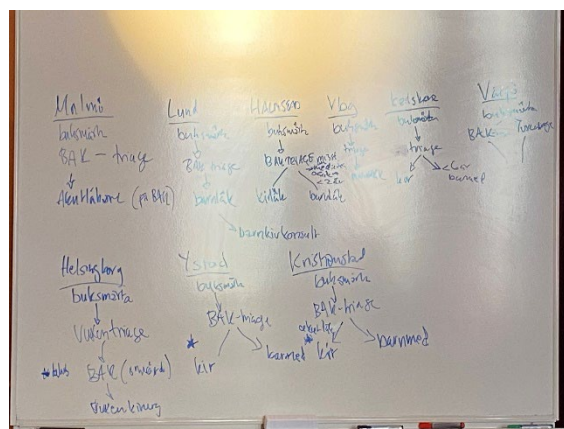 Malmö
buksmärta
BAK-triage
Akutläkare (på BAK)
Lund
buksmärta
BAK-triage
barnläk
barnkirkonsult
Halmstad
buksmärta
BAKTRIAGE
kirläk
barnläk
Vbg
buksmärta
triage
Karlskrona
buksmärta
triage
kir
barnmed
Växjö
buksmärta
BAK
Helsingborg
buksmärta
Vuxentriage
BAK
Vuxenkirurg
Ystad
buksmärta
BAK-triage
* kir
barnmed
Kristianstad
buksmärta
BAK-triage
* kir
barnmed